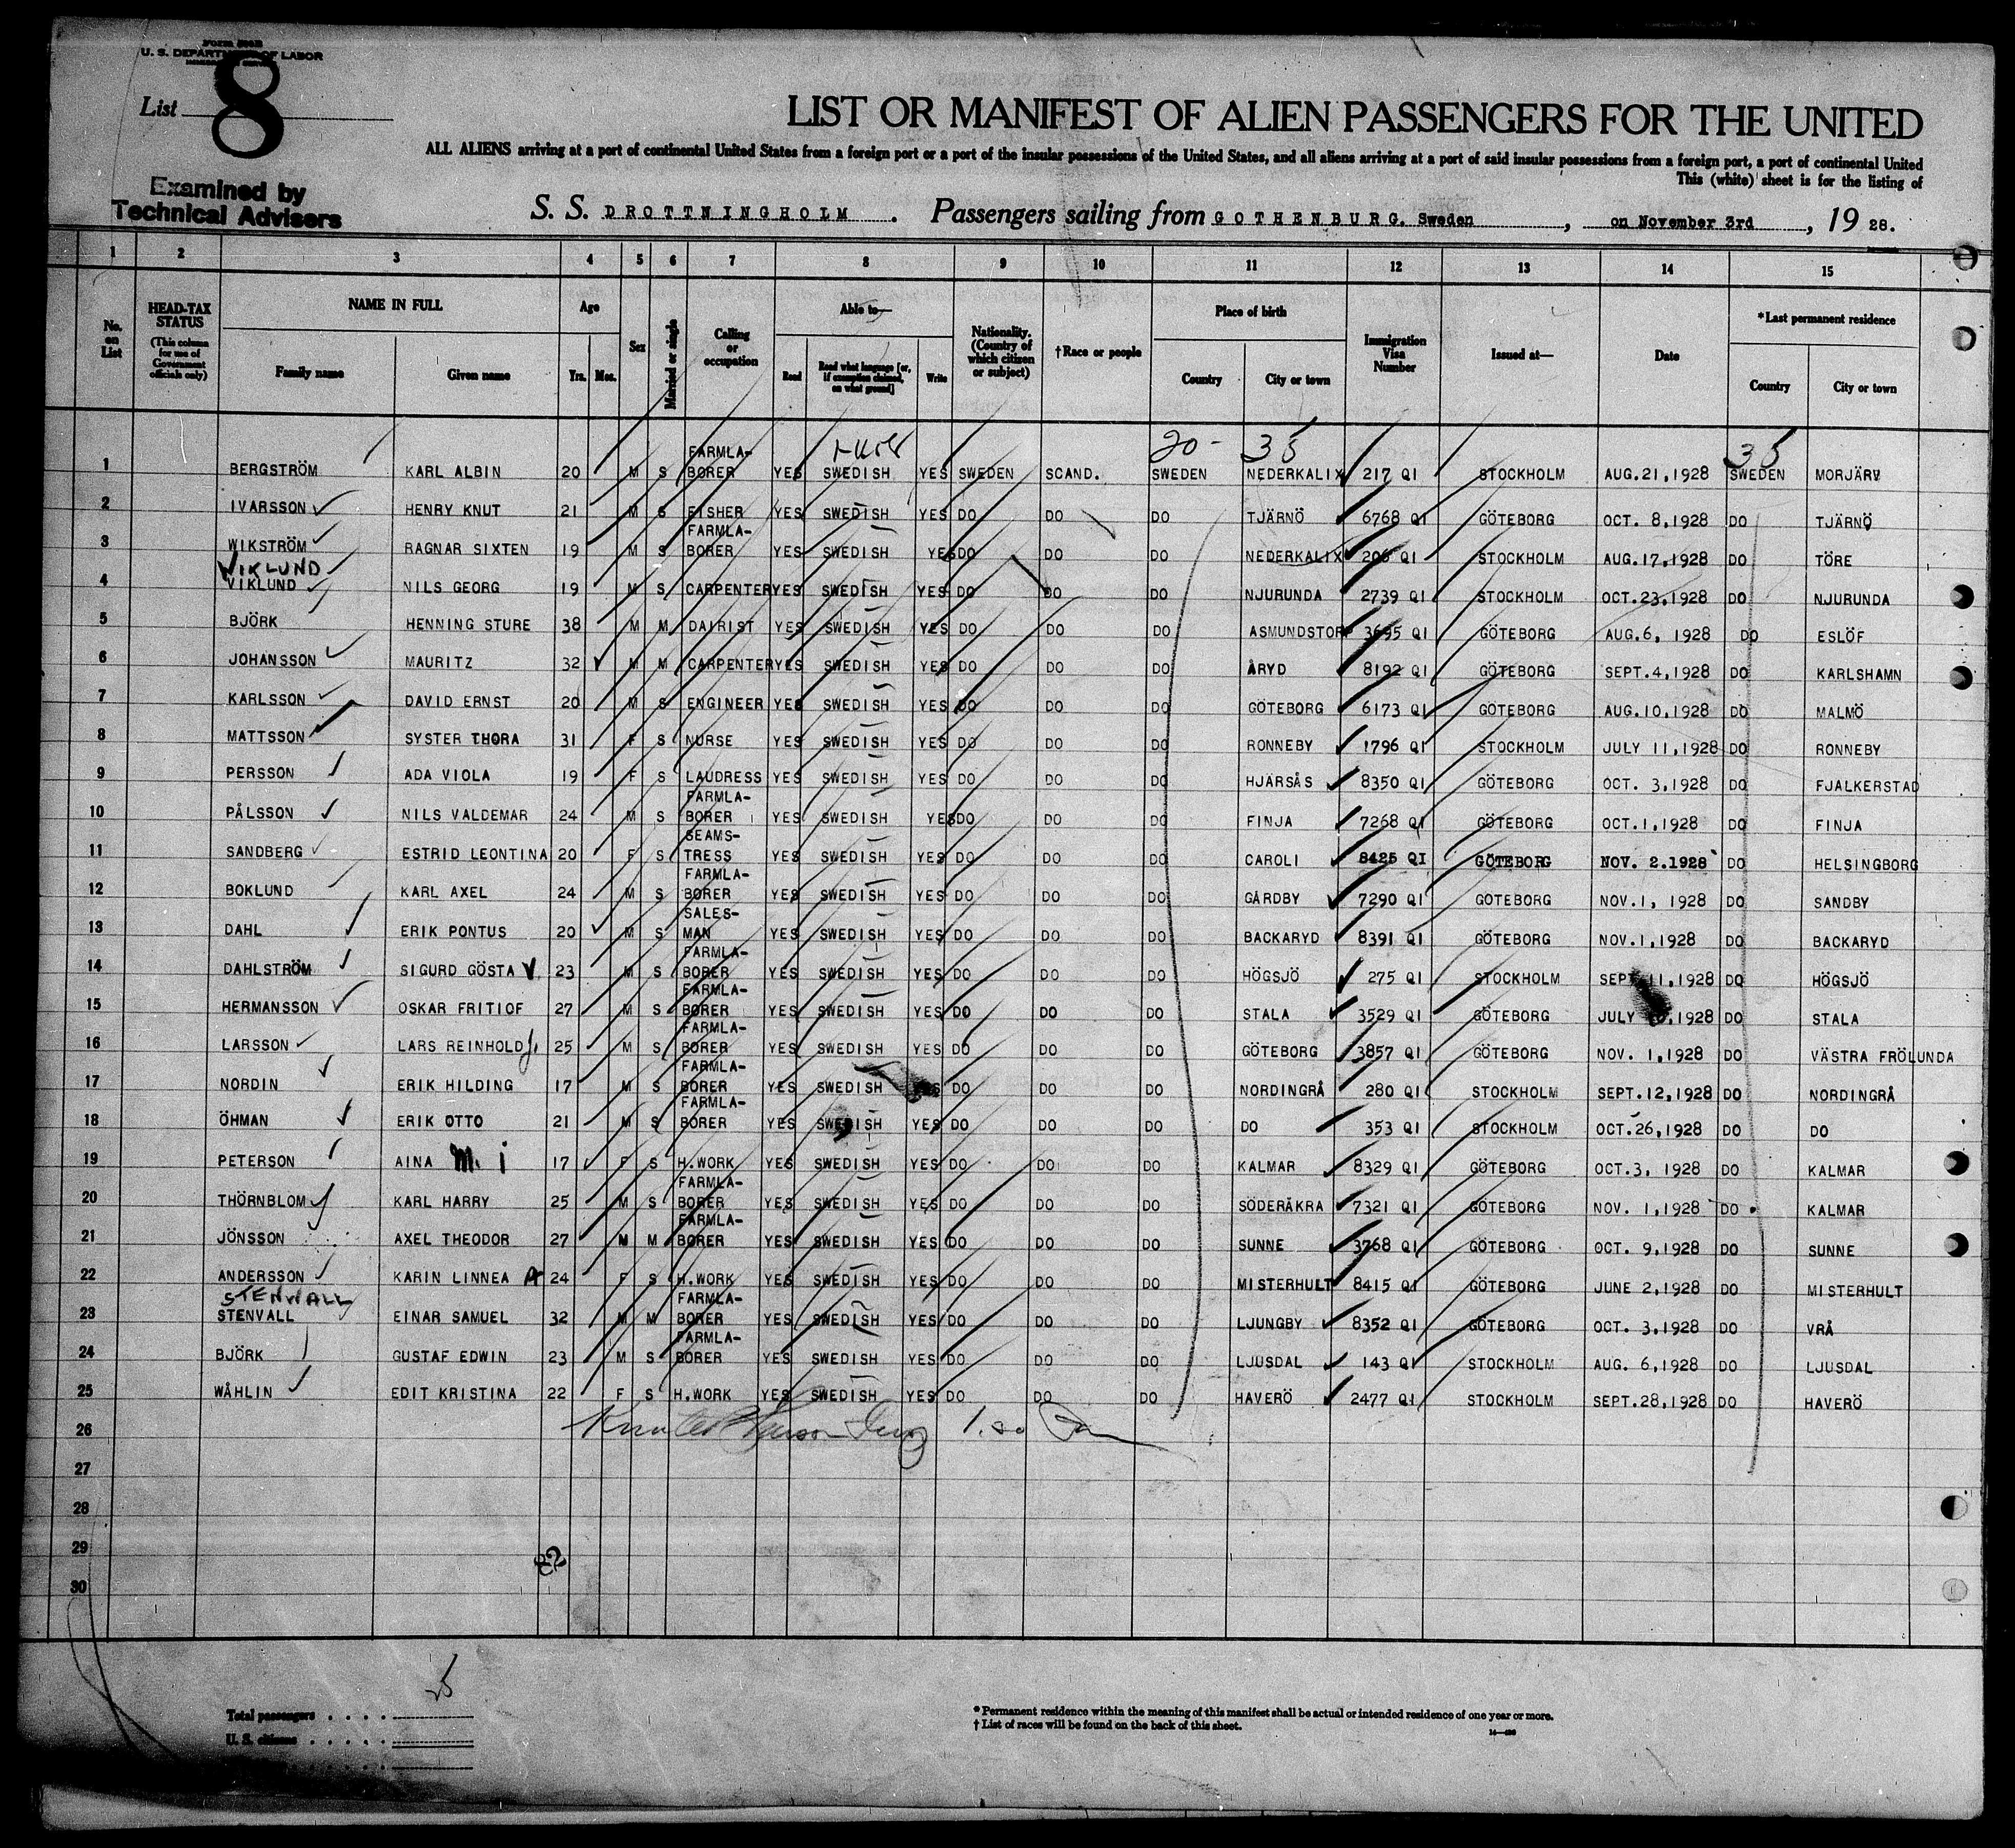 Form 500B
U. S. DEPARTMENT OF LABOR
List 8
LIST OR MANIFEST OF ALIEN PASSENGERS FOR THE UNITED
ALL ALIENS arriving at a port of continental United States from a foreign port or a port of the insular possessions of the United States, and all aliens arriving at a port of said insular possessions from a foreign port, a port of continental United
This (white) sheet is for the listing of
Examined by
Technical Advisers
S. S. DROTTNINGHOLM . Passengers sailing from GOTHENBURG. Sweden , on November 3rd , 19 28.
1 2 3 4 5 6 7 8 9 10 11 12 13 14 15
No. on List
HEAD-TAX STATUS (This column for use of Government officials only)
NAME IN FULL Family name Given name
Age Yrs. Mos.
Sex
Married or single
Calling or occupation
Able to— Read Read what language [or, if exemption claimed, on what ground] Write
Nationality. (Country of which citizen or subject)
†Race or people
Place of birth Country City or town
Immigration Visa Number
Issued at—
Date
*Last permanent residence Country City or town
20- 35 35
1 BERGSTRÖM KARL ALBIN 20 M S FARMLA-BORER YES SWEDISH YES SWEDEN SCAND. SWEDEN NEDERKALIX 217 QI STOCKHOLM AUG.21,1928 SWEDEN MORJÄRV
2 IVARSSON HENRY KNUT 21 M S FISHER YES SWEDISH YES DO DO DO TJÄRNÖ 6768 QI GÖTEBORG OCT. 8,1928 DO TJÄRNÖ
3 WIKSTRÖM RAGNAR SIXTEN 19 M S FARMLA-BORER YES SWEDISH YES DO DO DO NEDERKALIX 206 QI STOCKHOLM AUG.17,1928 DO TÖRE
WIKLUND
4 VIKLUND NILS GEORG 19 M S CARPENTER YES SWEDISH YES DO DO DO NJURUNDA 2739 QI STOCKHOLM OCT.23,1928 DO NJURUNDA
5 BJÖRK HENNING STURE 38 M M DAIRIST YES SWEDISH YES DO DO DO ASMUNDSTORP 3695 QI GÖTEBORG AUG.6, 1928 DO ESLÖF
6 JOHANSSON MAURITZ 32 M M CARPENTER YES SWEDISH YES DO DO DO ÅRYD 8192 QI GÖTEBORG SEPT.4,1928 DO KARLSHAMN
7 KARLSSON DAVID ERNST 20 M S ENGINEER YES SWEDISH YES DO DO DO GÖTEBORG 6173 QI GÖTEBORG AUG.10,1928 DO MALMÖ
8 MATTSSON SYSTER THORA 31 F S NURSE YES SWEDISH YES DO DO DO RONNEBY 1796 QI STOCKHOLM JULY 11,1928 DO RONNEBY
9 PERSSON ADA VIOLA 19 F S LAUDRESS YES SWEDISH YES DO DO DO HJÄRSÅS 8350 QI GÖTEBORG OCT. 3,1928 DO FJALKERSTAD
10 PÅLSSON NILS VALDEMAR 24 M S FARMLA-BORER YES SWEDISH YES DO DO DO FINJA 7268 QI GÖTEBORG OCT.1,1928 DO FINJA
11 SANDBERG ESTRID LEONTINA 20 F S SEAMS-TRESS YES SWEDISH YES DO DO DO CAROLI 8425 QI GÖTEBORG NOV. 2.1928 DO HELSINGBORG
12 BOKLUND KARL AXEL 24 M S FARMLA-BORER YES SWEDISH YES DO DO DO GÅRDBY 7290 QI GÖTEBORG NOV.1, 1928 DO SANDBY
13 DAHL ERIK PONTUS 20 M S SALES-MAN YES SWEDISH YES DO DO DO BACKARYD 8391 QI GÖTEBORG NOV.1,1928 DO BACKARYD
14 DAHLSTRÖM SIGURD GÖSTA V. 23 M S FARMLA-BORER YES SWEDISH YES DO DO DO HÖGSJÖ 275 QI STOCKHOLM SEPT.11,1928 DO HÖGSJÖ
15 HERMANSSON OSKAR FRITIOF 27 M S FARMLA-BORER YES SWEDISH YES DO DO DO STALA 3529 QI GÖTEBORG JULY ,1928 DO STALA
16 LARSSON LARS REINHOLD J. 25 M S FARMLA-BORER YES SWEDISH YES DO DO DO GÖTEBORG 3857 QI GÖTEBORG NOV. 1,1928 DO VÄSTRA FRÖLUNDA
17 NORDIN ERIK HILDING 17 M S FARMLA-BORER YES SWEDISH YES DO DO DO NORDINGRÅ 280 QI STOCKHOLM SEPT.12,1928 DO NORDINGRÅ
18 ÖHMAN ERIK OTTO 21 M S FARMLA-BORER YES SWEDISH YES DO DO DO DO 353 QI STOCKHOLM OCT.26,1928 DO DO
19 PETERSON AINA M. i 17 F S H.WORK YES SWEDISH YES DO DO DO KALMAR 8329 QI GÖTEBORG OCT.3, 1928 DO KALMAR
20 THÖRNBLOM KARL HARRY 25 M S FARMLA-BORER YES SWEDISH YES DO DO DO SÖDERÅKRA 7321 QI GÖTEBORG NOV. 1,1928 DO KALMAR
21 JÖNSSON AXEL THEODOR 27 M M FARMLA-BORER YES SWEDISH YES DO DO DO SUNNE 3768 QI GÖTEBORG OCT. 9,1928 DO SUNNE
22 ANDERSSON KARIN LINNEA A 24 F S H.WORK YES SWEDISH YES DO DO DO MISTERHULT 8415 QI GÖTEBORG JUNE 2,1928 DO MISTERHULT
STENWALL
23 STENVALL EINAR SAMUEL 32 M M FARMLA-BORER YES SWEDISH YES DO DO DO LJUNGBY 8352 QI GÖTEBORG OCT. 3,1928 DO VRÅ
24 BJÖRK GUSTAF EDWIN 23 M S FARMLA-BORER YES SWEDISH YES DO DO DO LJUSDAL 143 QI STOCKHOLM AUG. 6,1928 DO LJUSDAL
25 WÅHLIN EDIT KRISTINA 22 F S H.WORK YES SWEDISH YES DO DO DO HAVERÖ 2477 QI STOCKHOLM SEPT.28,1928 DO HAVERÖ
26
27
28
29
30
25
Total passengers . . . .
U. S. citizens . . . . .
* Permanent residence within the meaning of this manifest shall be actual or intended residence of one year or more.
† List of races will be found on the back of this sheet.